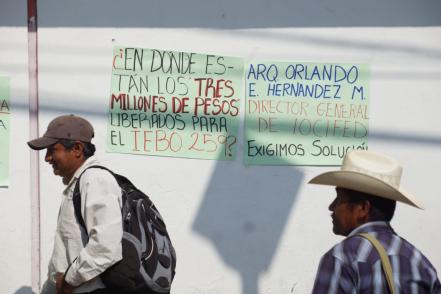 ¿EN DONDE ES-
TÁN LOS TRES
MILLONES DE PESOS
LIBERADOS PARA
EL IEBO 259?
ARQ. ORLANDO
E. HERNANDEZ M.
DIRECTOR GENERAL
DE IOCIFED
EXIGIMOS SOLUCIÓN